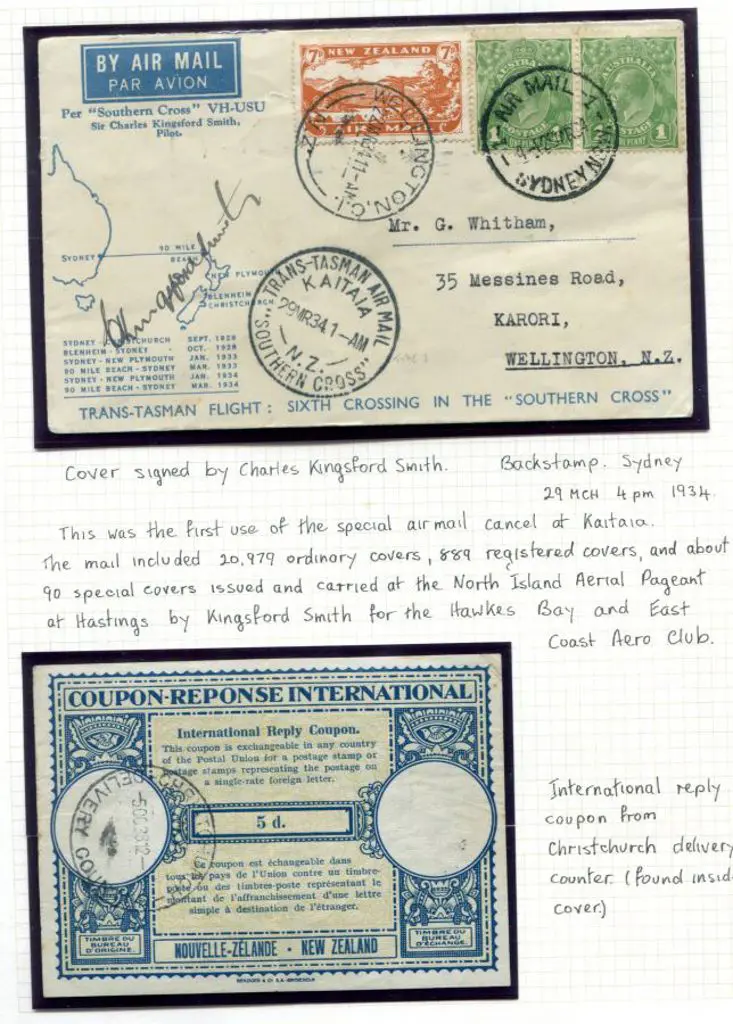 BY AIR MAIL
PAR AVION
Per "Southern Cross" VH-USU
Sir Charles Kingsford Smith,
Pilot.
7D NEW ZEALAND 7D
AIR MAIL
AUSTRALIA
1 POSTAGE
ONE PENNY
AUSTRALIA
POSTAGE 1
PENNY
WELLINGTON, C.I.
11-AM
N.Z.
AIR MAIL
SYDNEY
Mr. G. Whitham,
35 Messines Road,
KARORI,
WELLINGTON, N.Z.
SYDNEY
90 MILE
BEACH
NEW PLYMOUTH
BLENHEIM
CHRISTCHURCH
"TRANS-TASMAN AIR MAIL
KAITAIA
29MR34 1-AM
N.Z.
SOUTHERN CROSS"
SYDNEY - CHRISTCHURCH SEPT. 1928
BLENHEIM - SYDNEY - OCT. 1928
SYDNEY - NEW PLYMOUTH JAN. 1933
90 MILE BEACH - SYDNEY MAR. 1933
SYDNEY - NEW PLYMOUTH JAN. 1934
90 MILE BEACH - SYDNEY MAR. 1934
TRANS-TASMAN FLIGHT: SIXTH CROSSING IN THE "SOUTHERN CROSS"
Cover signed by Charles Kingsford Smith. Backstamp. Sydney
29 MCH 4 pm 1934.
This was the first use of the special airmail cancel at Kaitaia.
The mail included 20,979 ordinary covers, 889 registered covers, and about
90 special covers issued and carried at the North Island Aerial Pageant
at Hastings by Kingsford Smith for the Hawkes Bay and East
Coast Aero Club.
COUPON-REPONSE INTERNATIONAL
International Reply Coupon.
This coupon is exchangeable in any country
of the Postal Union for a postage stamp or
postage stamps representing the postage on
a single-rate foreign letter.
5 d.
Ce coupon est échangeable dans
tous les pays de l'Union contre un timbre-
poste ou des timbres-poste représentant le
montant de l'affranchissement d'une lettre
simple à destination de l'étranger.
DELIVERY
TIMBRE DU
BUREAU
D'ORIGINE.
TIMBRE DU
BUREAU
D'ÉCHANGE.
NOUVELLE-ZÉLANDE - NEW ZEALAND
International reply
coupon from
Christchurch delivery
counter. (found inside
cover.)